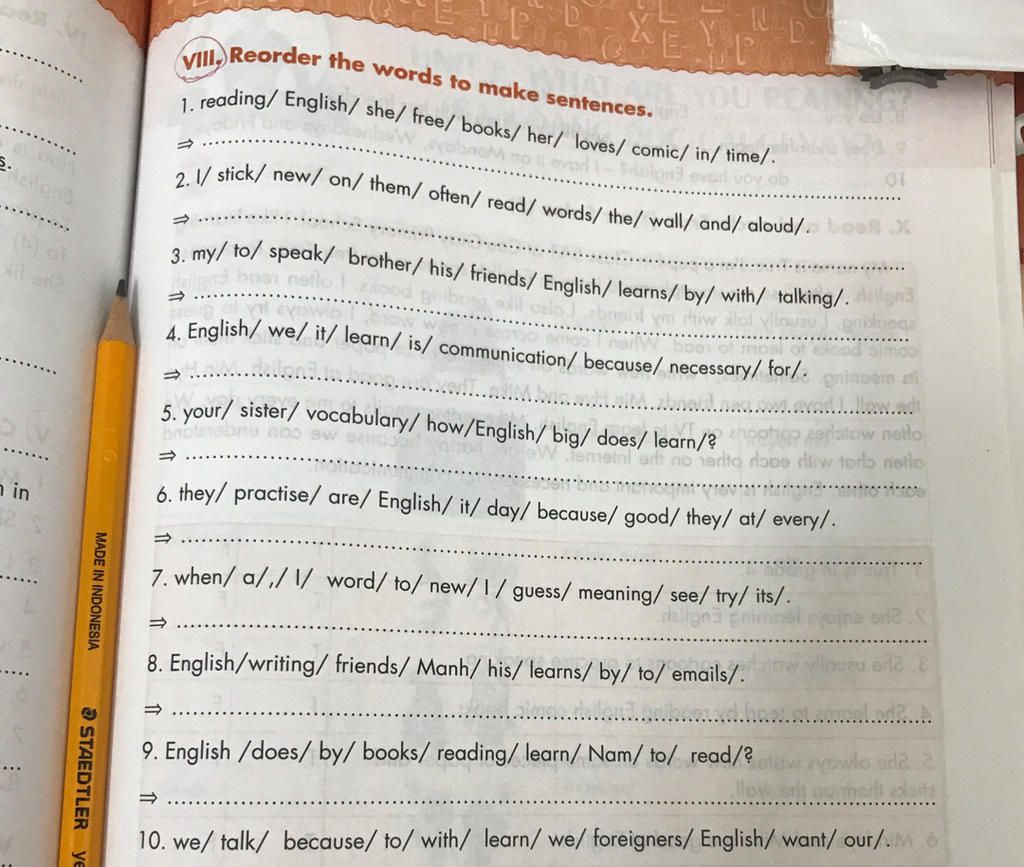 VIII. Reorder the words to make sentences.
1. reading/ English/ she/ free/ books/ her/ loves/ comic/ in/ time/.
⇒
2. I/ stick/ new/ on/ them/ often/ read/ words/ the/ wall/ and/ aloud/.
⇒
3. my/ to/ speak/ brother/ his/ friends/ English/ learns/ by/ with/ talking/.
⇒
4. English/ we/ it/ learn/ is/ communication/ because/ necessary/ for/.
⇒
5. your/ sister/ vocabulary/ how/English/ big/ does/ learn/?
⇒
6. they/ practise/ are/ English/ it/ day/ because/ good/ they/ at/ every/.
⇒
7. when/ a/,/ I/ word/ to/ new/ I / guess/ meaning/ see/ try/ its/.
⇒
8. English/writing/ friends/ Manh/ his/ learns/ by/ to/ emails/.
⇒
9. English /does/ by/ books/ reading/ learn/ Nam/ to/ read/?
⇒
10. we/ talk/ because/ to/ with/ learn/ we/ foreigners/ English/ want/ our/.
s.
in
MADE IN INDONESIA
STAEDTLER